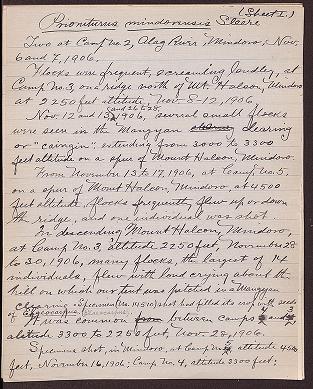 (Sheet 1.)
Prioniturus mindorensis Steere
Two at Camp No. 2, Alag River, Mindoro, Nov.
6 and 7, 1906.
Flocks were frequent, screaming loudly, at
Camp No. 3, on a ridge north of Mt. Halcon, Mindoro
at 2250 feet altitude, Nov. 8-12, 1906.
and 26 & 28,
Nov 12 and 13, 1906, several small flocks
were seen in the Mangyan clearing
or "caingin", extending from 3000 to 3300
feet altitude on a spur of Mount Halcon, Mindoro.
From November 13 to 17, 1906, at Camp No. 5,
on a spur of Mount Halcon, Mindoro, at 4500
feet altitude, flocks frequently flew up or down
the ridge, and one individual was shot.
In descending Mount Halcon, Mindoro,
at Camp No. 3, altitude 2250 feet, November 28
to 30, 1906, many flocks, the largest of 14
individuals, flew with loud crying about the
hill on which our tent was pitched in a Mangyan
clearing. Specimen (No. 14510) shot had filled its crop with seeds
of
It was common from between camps 4 and 3
altitude 3300 to 2250 feet Nov. 28, 1906.
Specimens shot, in Mindoro, at Camp No. 5, altitude 4500
feet, November 16, 1906; Camp No. 4, altitude 3300 feet;